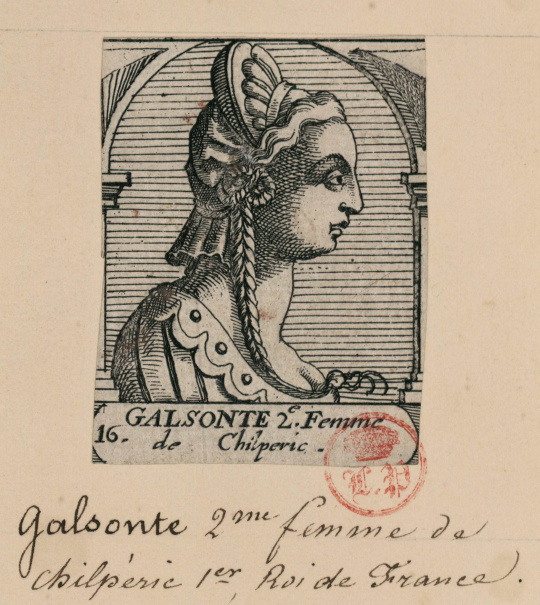 GALSONTE 2.e Femme
16. de Chilperic.
L.P
Galsonte 2me femme de
chilpéric 1er, Roi de France.